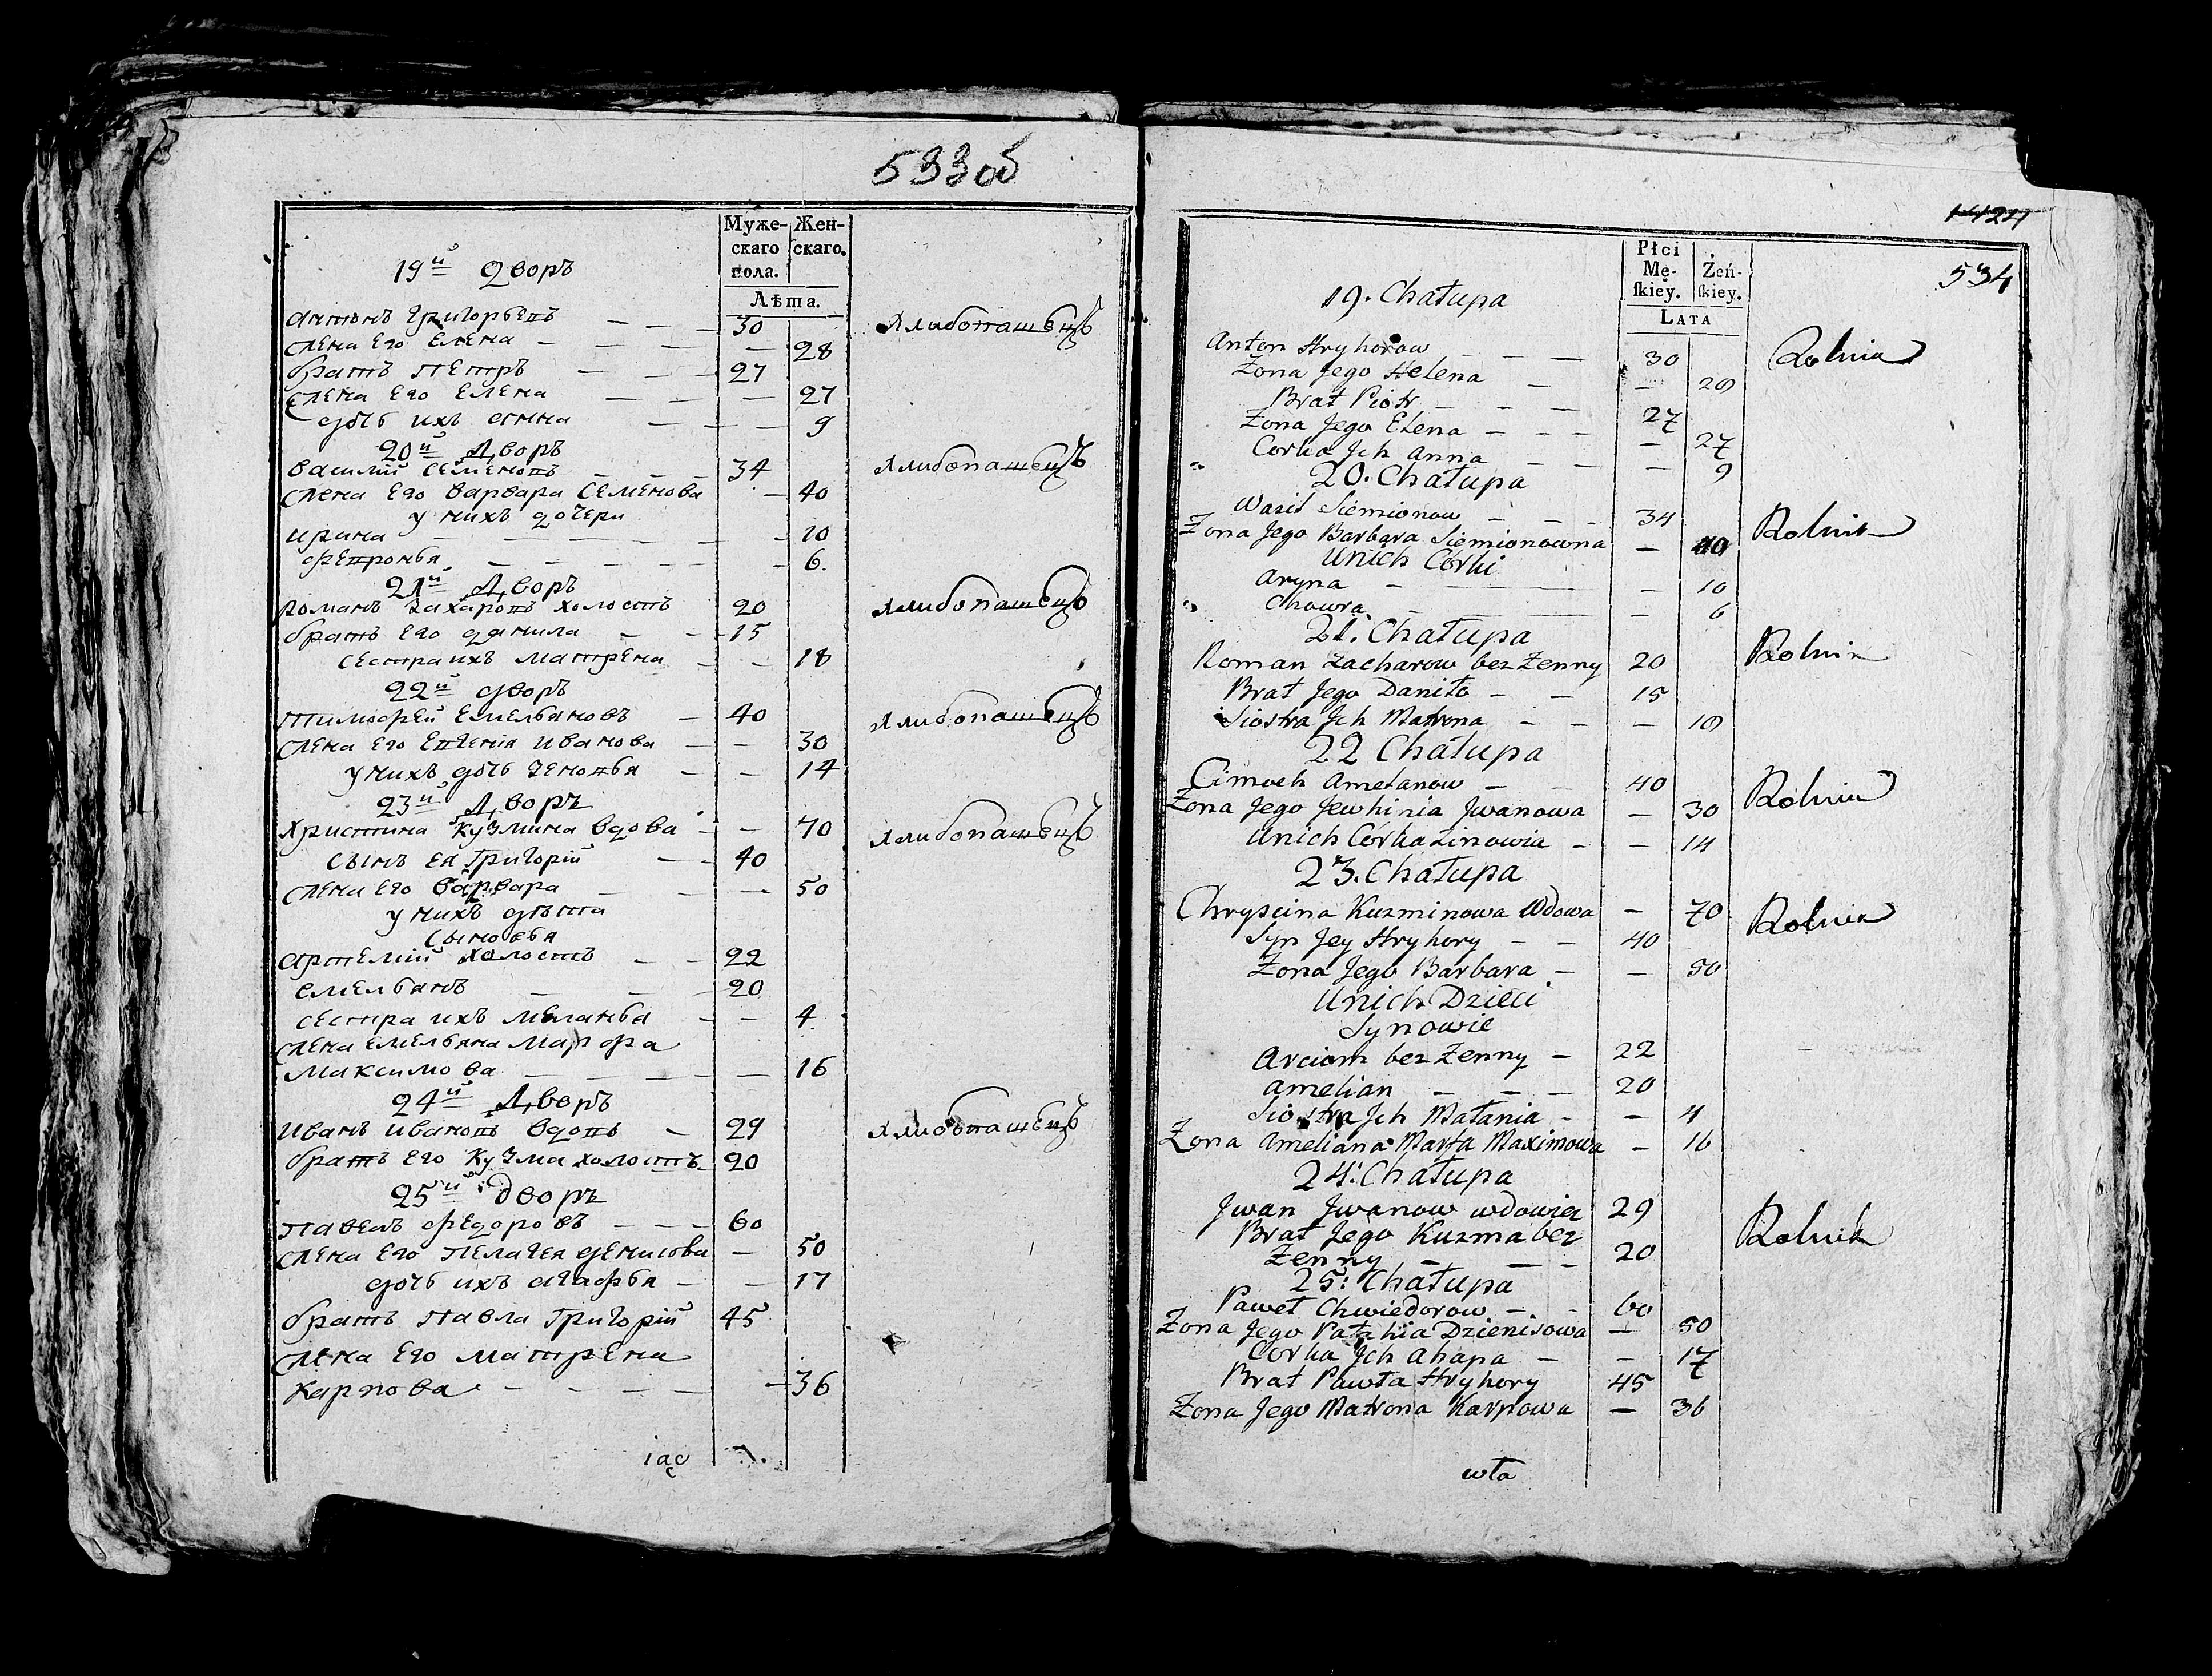 533 об
Муже-
скаго
пола.
Жен-
скаго.
Лѣта.
19й Дворъ
Антонъ Григорьевъ — — — 30
Хлибопашецъ
Жена Его Елена — — — — 28
братъ Петръ — — — 27
Жена Его Елена — — — 27
дочь ихъ Анна — — — 9
20й Дворъ
Василий Семеновъ — — — 34
Хлибопашецъ
Жена Его Варвара Семенова — 40
у нихъ дочери
Ирина — — — — 10
Февронья — — — — 6.
21й Дворъ
Романъ Захаровъ холостъ 20
Хлибопашецъ
братъ Его Данила — — 15
сестра ихъ Матрена — — 18
22й Дворъ
Тимофей Емельяновъ — 40
Хлибопашецъ
Жена Его Евгения Иванова — — 30
у нихъ дочь Зеновья — — 14
23й Дворъ
Христина Кузмина вдова — — 70
Хлибопашецъ
сынъ Ея Григорій — — 40
Жена Его Варвара — — — 50
у нихъ дѣти
Сыновья
Артемий холостъ — — 22
Емельянъ — — — 20
сестра ихъ Меланья — — 4
Жена Емельяна Марфа
Максимова — — — — — 16
24й Дворъ
Иванъ Ивановъ вдовъ — 29
Хлибопашецъ
братъ Его Кузма холостъ 20
25й Дворъ
Павелъ Федоровъ — — — 60
Жена Его Пелагея Денисова — 50
дочь ихъ Агафья — — 17
братъ Павла Григорій 45
Жена Его Матрена
Карпова — — — — — 36
534
Płci
Mę-
ſkiey.
Żeń-
ſkiey.
LATA
19. Chałupa
Anton Hryhorow — — — 30
Rolnik
Żona Jego Helena — — 28
Brat Piotr — — — 27
Żona Jego Elena — — — — 27
Corka Jch Anna — — — 9
20. Chałupa
Wasil Siemionow — — — 34
Rolnik
Żona Jego Barbara Siemionowna — 40
Unich Córki
Aryna — — — 10
Chowra — — — 6
21. Chałupa
Roman Zacharow bez Żenny 20
Rolnik
Brat Jego Daniło — — 15
Siostra Jch Matrona — — — 18
22 Chałupa
Cimoch Amelanow — — 40
Rolnik
Żona Jego Jewhinia Jwanowa — 30
Unich Córka Zinowia — — 14
23. Chałupa
Chryscina Kuzminowa Wdowa — 70
Rolnik
Syn Jey Hryhory — — 40
Żona Jego Barbara — — 50
Unich Dzieci
Synowie
Arciom bez Żenny — 22
Amelian — — — 20
Siostra Jch Małania — — 4
Żona Ameliana Marfa Maximowa — 16
24. Chałupa
Jwan Jwanow wdowiec 29
Rolnik
Brat Jego Kuzma bez
Żenny — — — 20
25: Chałupa
Paweł Chwiedorow — — 60
Żona Jego Pałahia Dzienisowa — 50
Corka Jch Ahapa — — 17
Brat Pawła Hryhory 45
Żona Jego Matrona Karpowa — 36
wła